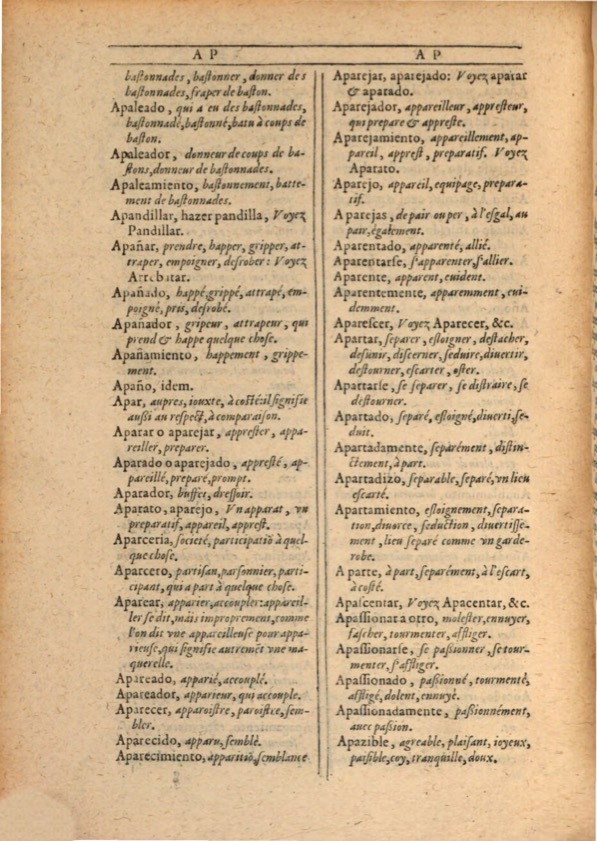 AP
AP
baſtonnades, baſtonner, donner des
baſtonnades, fraper de baſton.
Apaleado, qui a eu des baſtonnades,
baſtonnadé, baſtonné, batu à coups de
baſton.
Apaleador, donneur de coups de ba-
ſtons, donneur de baſtonnades.
Apaleamiento, baſtonnement, batte-
ment de baſtonnades.
Apandillar, hazer pandilla, Voyez
Pandillar.
Apañar, prendre, happer, gripper, at-
traper, empoigner, deſrober: Voyez
Arrebatar.
Apañado, happé, grippé, attrapé, em-
poigné, pris, deſrobé.
Apañador, gripeur, attrapeur, qui
prend & happe quelque choſe.
Apañamiento, happement, grippe-
ment.
Apaño, idem.
Apar, aupres, iouxte, à coſté: il ſignifie
außi au reſpect, à comparaiſon.
Aparar o aparejar, appreſter, appa-
reiller, preparer.
Aparado o aparejado, appreſté, ap-
pareillé, preparé, prompt.
Aparador, buffet, dreſſoir.
Aparato, aparejo, Vn apparat, vn
preparatif, appareil, appreſt.
Aparceria, societé, participatiō à quel-
que choſe.
Aparcero, partiſan, parſonnier, parti-
cipant, qui a part à quelque choſe.
Aparear, apparier, accoupler: appareil-
ler ſe dit, mais improprement, comme
l'on dit vne appareilleuſe pour appa-
rieuſe, qui ſignifie autremēt vne ma-
querelle.
Apareado, apparié, accouplé.
Apareador, apparieur, qui accouple.
Aparecer, apparoiſtre, paroiſtre, ſem-
bler.
Aparecido, apparu, ſemblé.
Aparecimiento, apparitiō, ſemblance
Aparejar, aparejado: Voyez aparar
& aparado.
Aparejador, appareilleur, appreſteur,
qui prepare & appreſte.
Aparejamiento, appareillement, ap-
pareil, appreſt, preparatif. Voyez
Aparato.
Aparejo, appareil, equipage, prepara-
tif.
A parejas, de pair ou per, à l'eſgal, au
pair, également.
Aparentado, apparenté, allié.
Aparentarſe, ſ'apparenter, ſ'allier.
Aparente, apparent, euident.
Aparentemente, apparemment, eui-
demment.
Apareſcer, Voyez Aparecer, &c.
Apartar, ſeparer, eſloigner, deſtacher,
deſunir, diſcerner, ſeduire, diuertir,
deſtourner, eſcarter, oſter.
Apartarſe, ſe ſeparer, ſe diſtraire, ſe
deſtourner.
Apartado, ſeparé, eſloigné, diuerti, ſe-
duit.
Apartadamente, ſeparément, diſtin-
ctement, à part.
Apartadizo, ſeparable, ſeparé, vn lieu
eſcarté.
Apartamiento, eſloignement, ſepara-
tion, diuorce, ſeduction, diuertiſſe-
ment, lieu ſeparé comme vn garde-
robe.
A parte, à part, ſeparément, à l'eſcart,
à coſté.
Apaſcentar, Voyez Apacentar, &c.
Apaſſionar a otro, moleſter, ennuyer,
faſcher, tourmenter, affliger.
Apaſſionarſe, ſe paßionner, ſe tour-
menter, ſ'affliger.
Apaſſionado, paßionné, tourmenté,
affligé, dolent, ennuyé.
Apaſſionadamente, paßionnément,
auec paßion.
Apazible, agreable, plaiſant, ioyeux,
paiſible, coy, tranquille, doux.